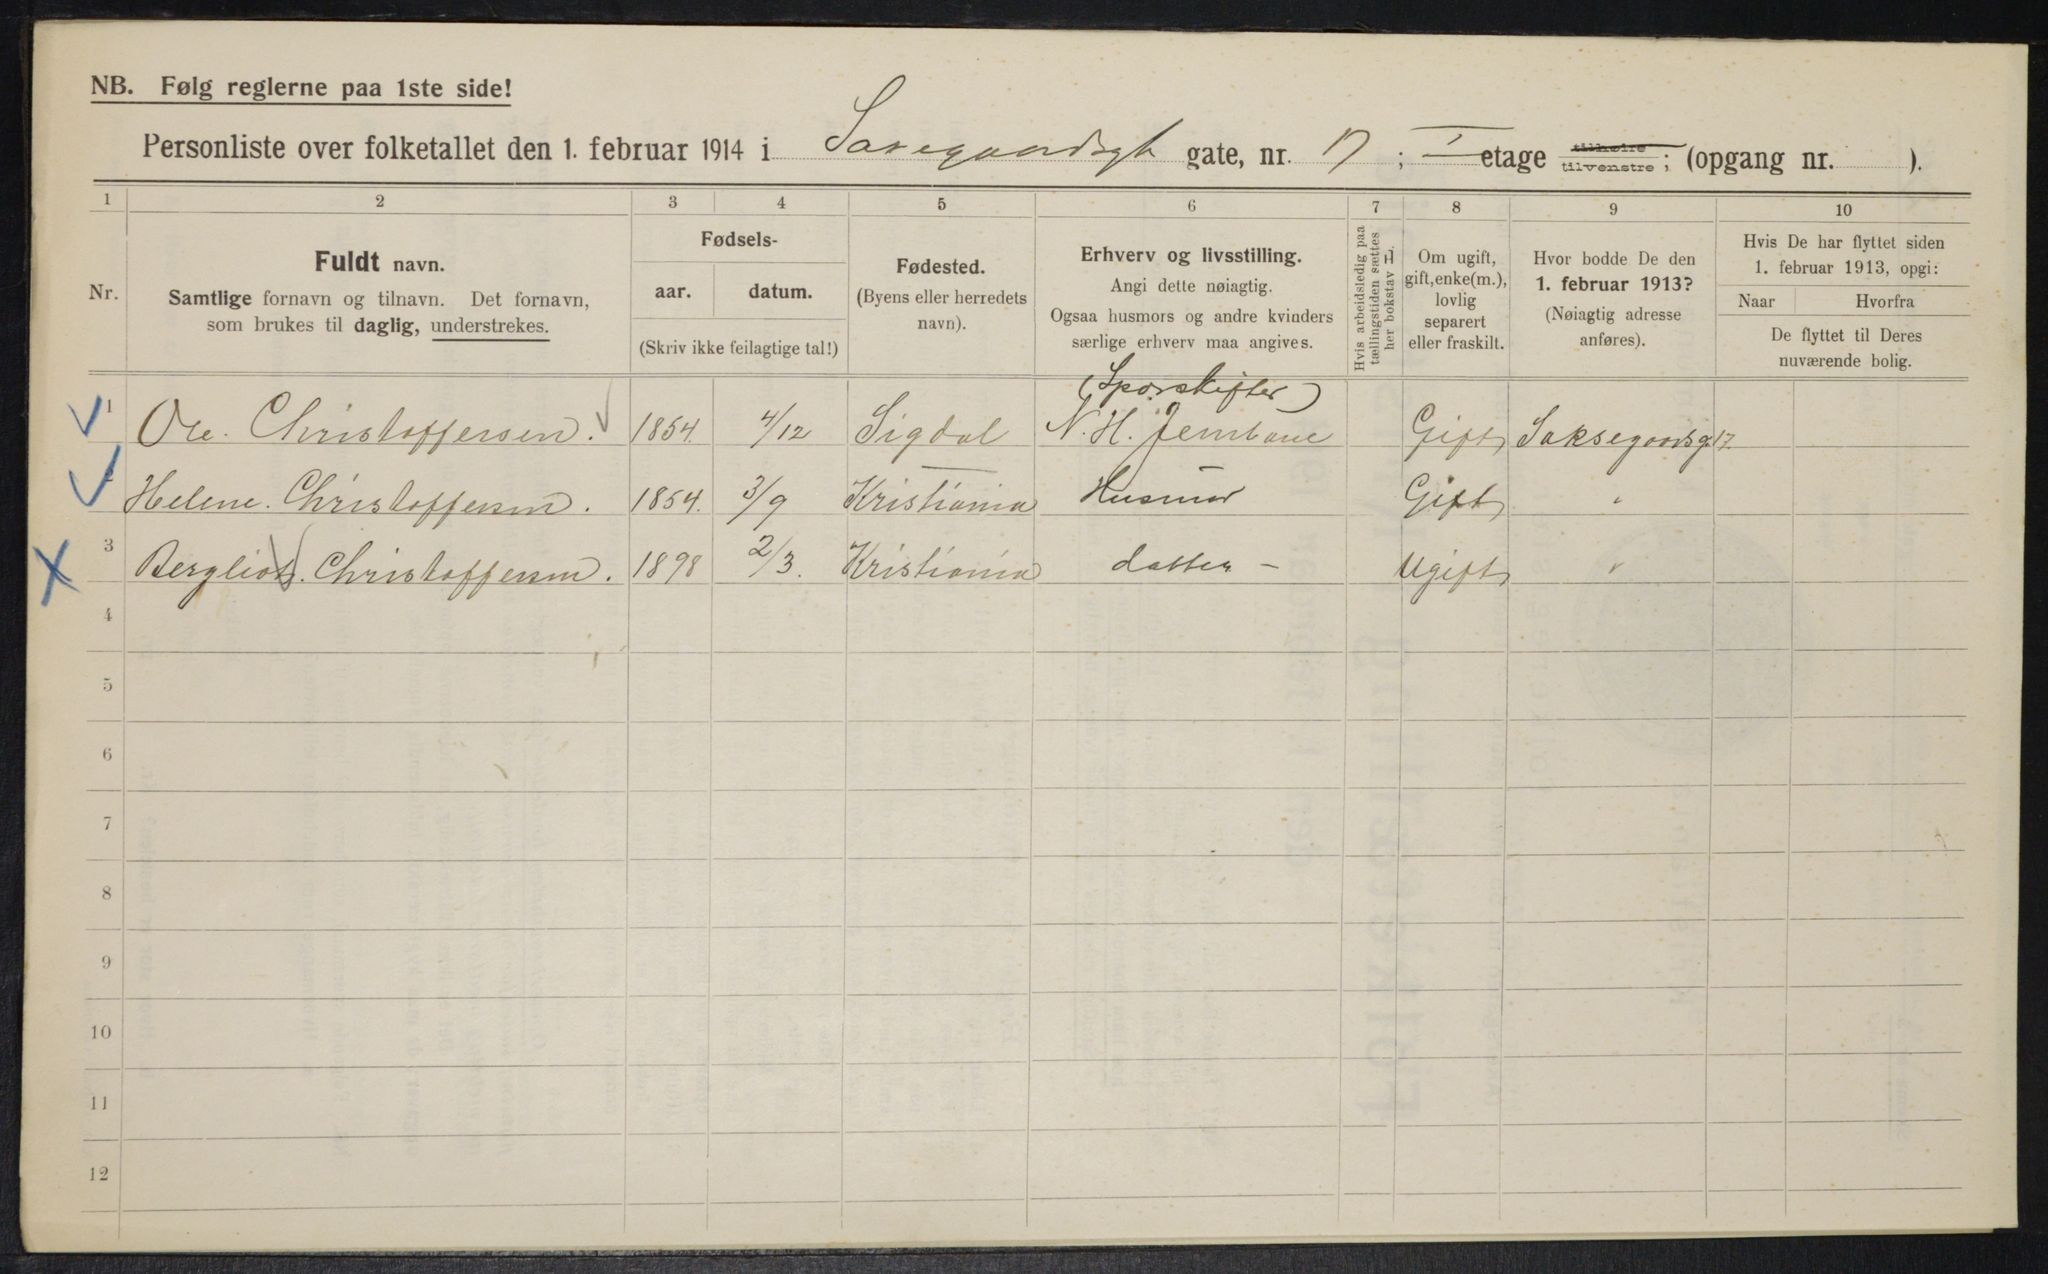 NB. Følg reglerne paa 1ste side!
Personliste over folketallet den 1. februar 1914 i Saxegaardsgt gate, nr. 17; I etage tilhøire tilvenstre; (opgang nr. ).
1 2 3 4 5 6 7 8 9 10
Nr.
Fuldt navn.
Samtlige fornavn og tilnavn. Det fornavn,
som brukes til daglig, understrekes.
Fødsels-
aar. datum.
(Skriv ikke feilagtige tal!)
Fødested.
(Byens eller herredets
navn).
Erhverv og livsstilling.
Angi dette nøiagtig.
Ogsaa husmors og andre kvinders
særlige erhverv maa angives.
Hvis arbeidsledig paa
tællingstiden sættes
her bokstav L.
Om ugift,
gift, enke(m.),
lovlig
separert
eller fraskilt.
Hvor bodde De den
1. februar 1913?
(Nøiagtig adresse
anføres).
Hvis De har flyttet siden
1. februar 1913, opgi:
Naar Hvorfra
De flyttet til Deres
nuværende bolig.
(Sporskifter)
1 Ole. Christoffersen. 1854. 4/12 Sigdal N. H. Jernbane Gift Saksegaardsg 17
2 Helene. Christoffersen. 1854. 3/9 Kristiania Husmor Gift "
3 Bergliot. Christoffersen. 1898 2/3. Kristiania datter - Ugift "
4
5
6
7
8
9
10
11
12